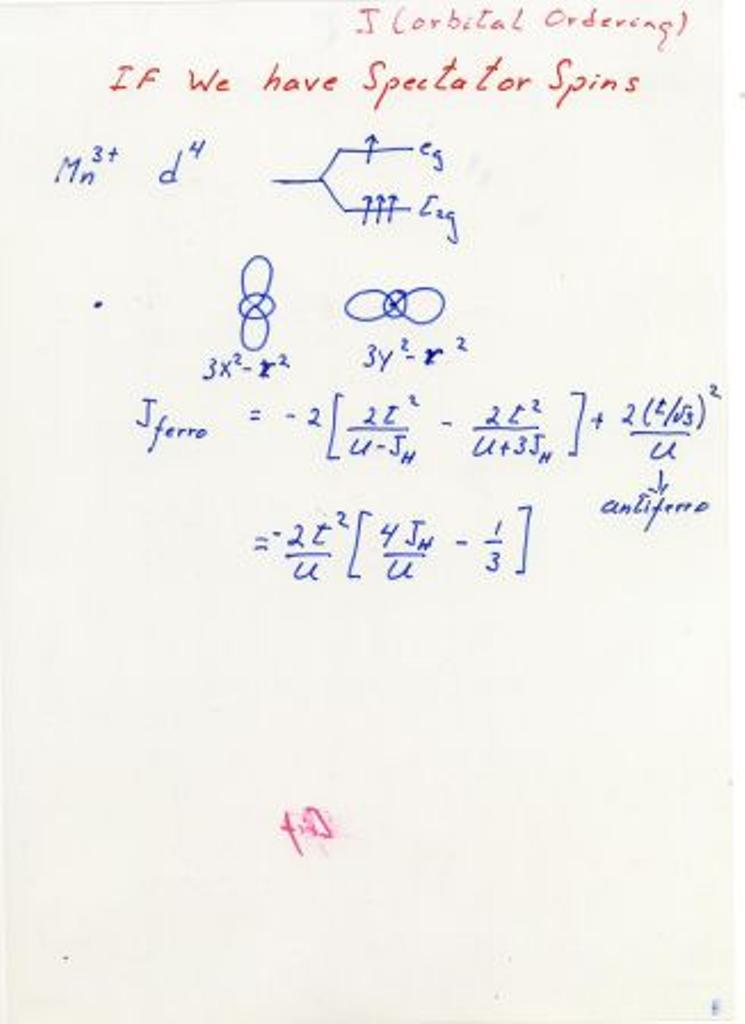 J (orbital Ordering)
IF We have Spectator Spins
Mn³⁺ d⁴ e_g
t_2g
3x²-r² 3y²-r²
J_ferro = -2 [ 2t²/(U-J_H) - 2t²/(U+3J_H) ] + 2(t/√3)²/U
antiferro
= -2t²/U [ 4J_H/U - 1/3 ]